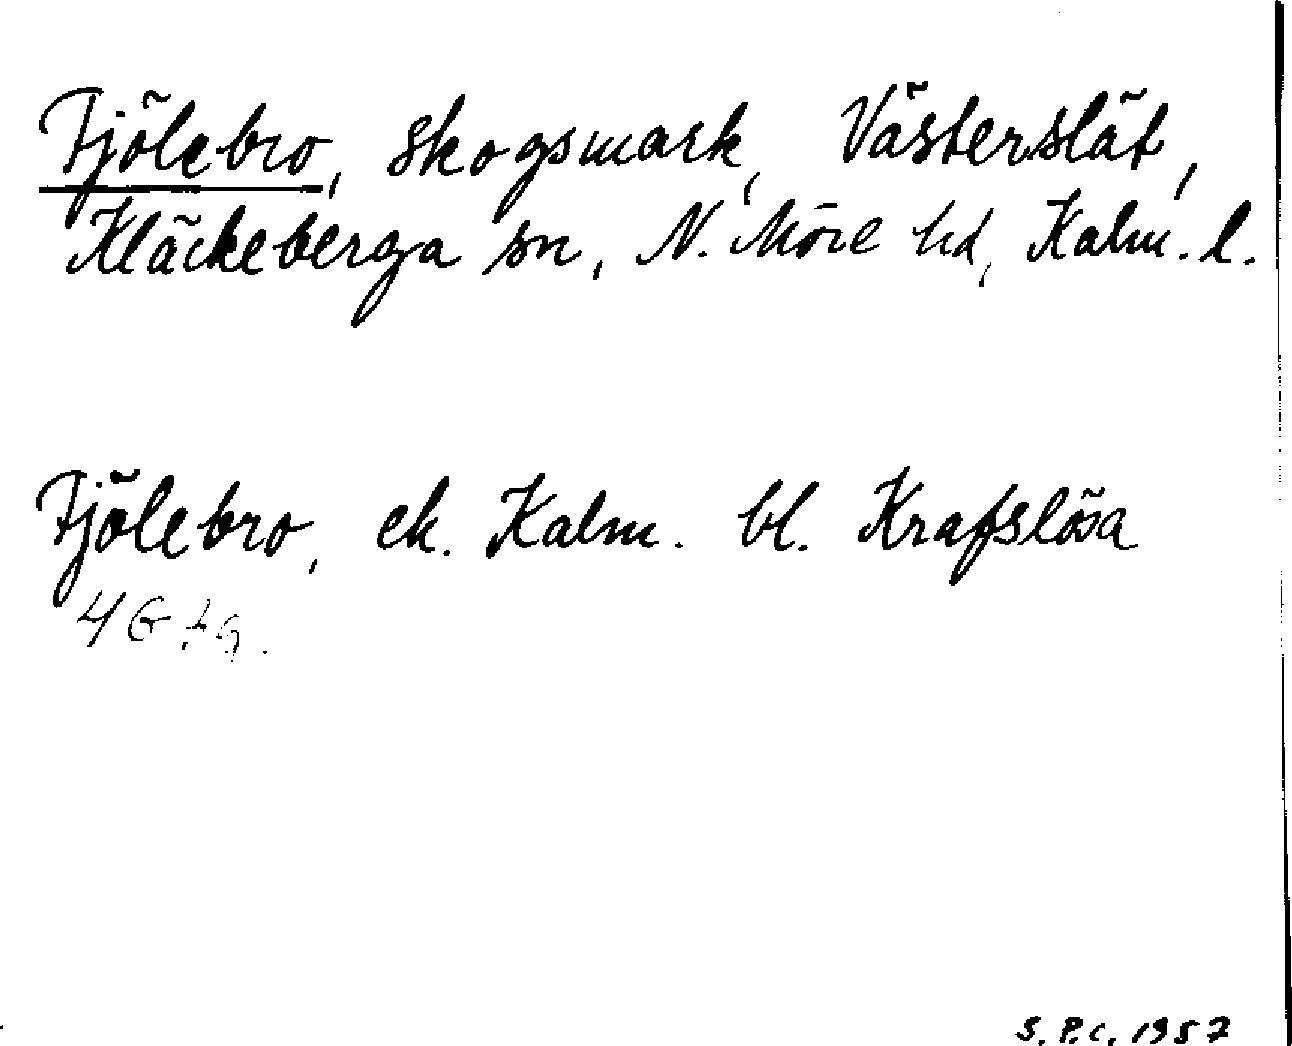 Fjölebro, skogsmark, Västerslät,
Kläckeberga sn, N. Möre hd, Kalm. l.
Fjölebro, ek. Kalm. bl. Krafslösa
4 G f g.
S.P.C. 1957